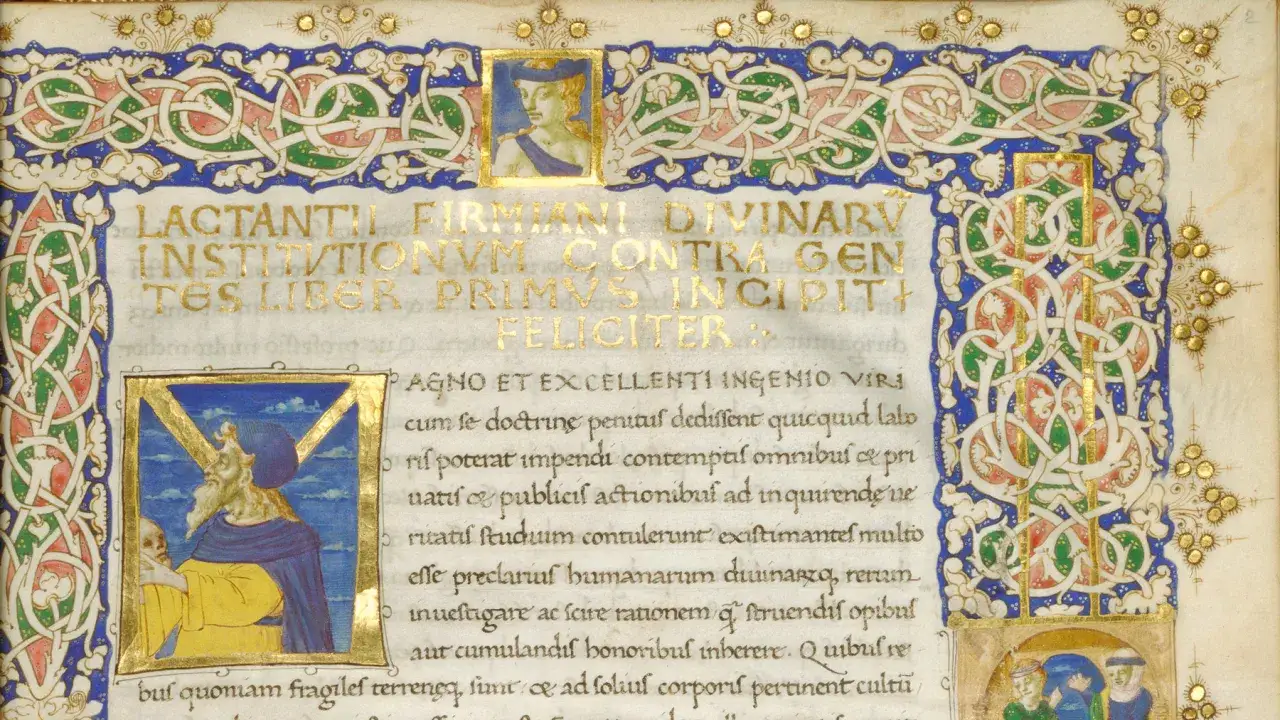 LACTANTII FIRMIANI DIVINARŪ
INSTITVTIONVM CONTRA GEN
TES LIBER PRIMVS INCIPIT
FELICITER :·
MAGNO ET EXCELLENTI INGENIO VIRI
cum se doctrinę penitus dedissent quicquid labo
ris poterat impendi contemptis omnibus & pri
uatis & publicis actionibus ad inquirendę ue
ritatis studium contulerunt existimantes multo
esse preclarius humanarum diuinarꝝq, rerum
inuestigare ac scire rationem q̄ struendis opibus
aut cumulandis honoribus inherere. Quibus re
bus quoniam fragiles terrenęq, sunt & ad solius corporis pertinent cultū